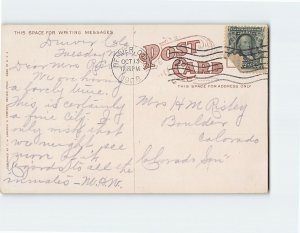 THIS SPACE FOR WRITING MESSAGES
Denver Colo
Tuesday
Dear Mrs R
We are having
a lovely time.
This is certainly
a fine City. I
only wish that
we might see
more of it.
Regards to all the
inmates - M.A.W.
OCT 13
POST
CARD
THIS SPACE FOR ADDRESS ONLY
Mrs H M Risley
Boulder
Colorado